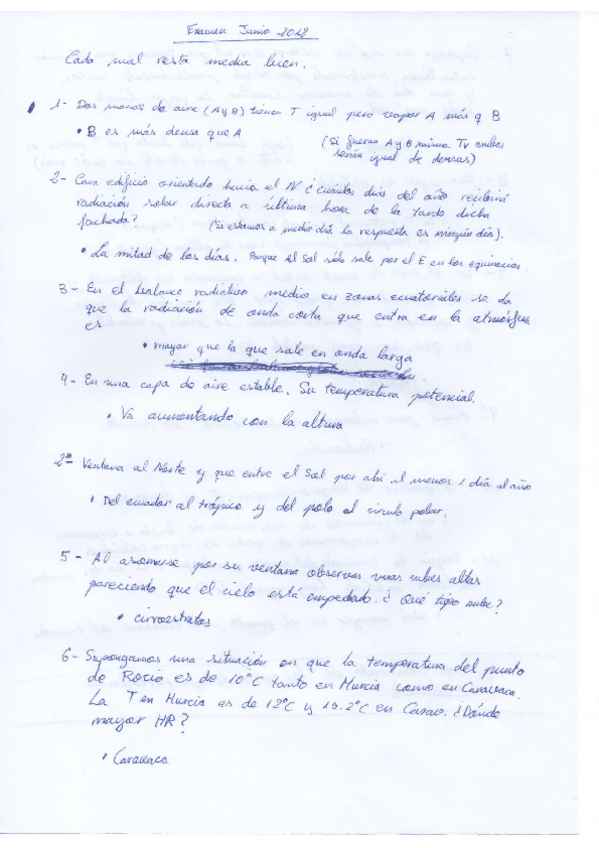 Examen Junio 2012
Cada mal resta media bien.
1- Dos masas de aire (A y B) tienen T igual pero vapor A más q B
• B es más densa que A (Si fueran A y B misma Tv ambas
serían igual de densas)
2- Casa edificio orientado hacia el N ¿cuántos días del año recibirá
radiación solar directa a última hora de la tarde dicha
fachada? (Si estamos a medio día la respuesta es ningún día).
• La mitad de los días. Porque el Sol sólo sale por el E en los equinocios.
3- En el balance radiativo medio en zonas ecuatoriales se da
que la radiación de onda corta que entra en la atmósfera
es
• mayor que la que sale en onda larga
4- En una capa de aire estable. Su temperatura potencial.
• Va aumentando con la altura
2ª Ventana al Norte y que entre el Sol por ahí al menos 1 día al año
• Del ecuador al trópico y del polo al círculo polar.
5- Al asomarse por su ventana observas unas nubes altas
pareciendo que el cielo está empedrado. ¿Qué tipo nube?
• cirroestratos
6- Supongamos una situación en que la temperatura del punto
de Rocío es de 10°C tanto en Murcia como en Caravaca.
La T en Murcia es de 12°C y 13.2°C en Carav. ¿Dónde
mayor HR?
• Caravaca